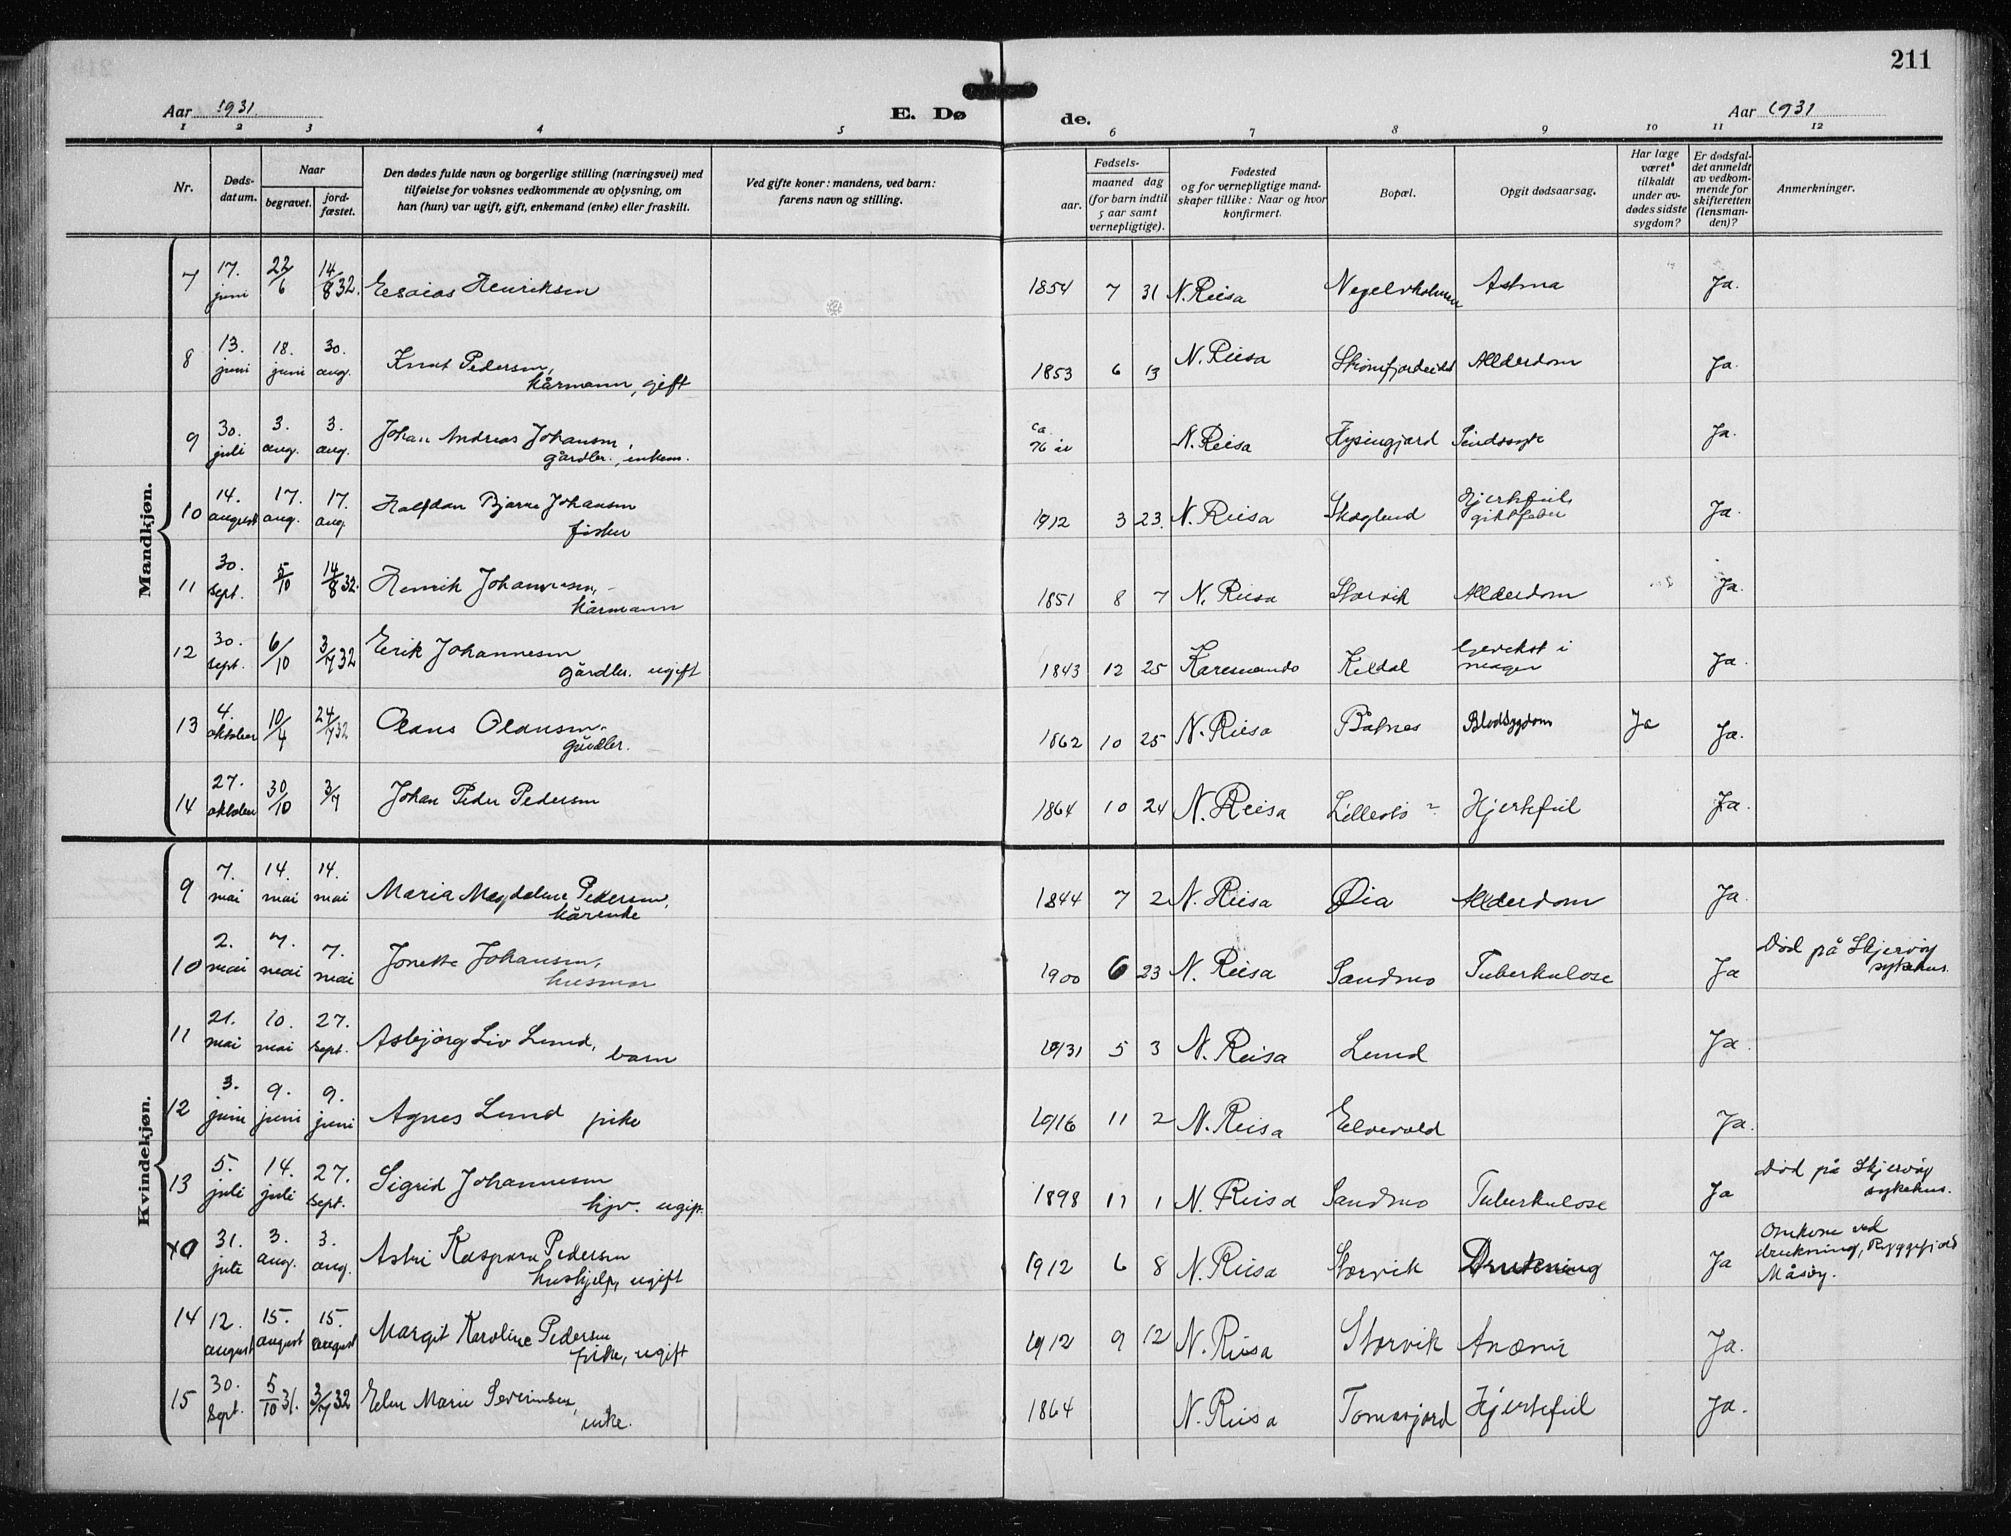 211
Aar 1931
E. Dø
de.
Aar 1931
1 2 3 4 5 6 7 8 9 10 11 12
Nr.
Døds-
datum.
Naar
begravet.
jord-
fæstet.
Den dødes fulde navn og borgerlige stilling (næringsvei) med
tilføielse for voksnes vedkommende av oplysning, om
han (hun) var ugift, gift, enkemand (enke) eller fraskilt.
Ved gifte koner: mandens, ved barn:
farens navn og stilling.
Fødsels-
aar.
maaned dag
(for barn indtil
5 aar samt
vernepligtige).
Fødested
og for vernepligtige mand-
skaper tillike: Naar og hvor
konfirmert.
Bopæl.
Opgit dødsaarsag.
Har læge
været
tilkaldt
under av-
dødes sidste
sygdom?
Er dødsfal-
det anmeldt
av vedkom-
mende for
skifteretten
(lensman-
den)?
Anmerkninger.
Mandkjøn.
7 17. juni 22/6 14/8 32. Esaias Henriksen 1854 7 31 N. Reisa Astma Ja.
8 13. juni 18. juni 30. aug. Knut Pedersen,
kårmann, gift 1853 6 13 N. Reisa Alderdom Ja.
9 30. juli 3. aug. 3. aug. Johan Andreas Johansen,
gårdbr., enkem. ca. 76 år N. Reisa Sindssyk Ja.
10 14. august 17. aug. 17. aug. Halfdan Bjarne Johansen
fisker 1912 3 23. N. Reisa Skoglund Hjertefeil,
giktfeber Ja.
11 30. sept. 5/10 14/8 32. Henrik Johannesen,
kårmann 1851 8 7 N. Reisa Storvik Alderdom Ja.
12 30. sept. 6/10 3/7 32 Erik Johannesen
gårdbr. ugift 1843 12 25 Karesuando Kildal i
magen Ja.
13 4. oktober 10/4 24/7 32 Olaus Olausen,
gårdbr. 1862 10 25 N. Reisa Båtnes Blodsygdom Ja Ja.
14 27. oktober 30/10 3/7 Johan Peder Pedersen 1864 10 24 N. Reisa Hjertefeil Ja.
Kvindekjøn.
9 7. mai 14. mai 14. mai Maria Magdalene Pedersen,
kårenke 1844 7 2 N. Reisa Øia Alderdom Ja.
10 2. mai 7. mai 7. mai Jonette Johansen,
husmor 1900 6 23 N. Reisa Sandmo Tuberkulose Ja Død på Skjervøy
sykehus.
11 21. mai 10. mai 27. sept. Asbjörg Liv Lund,
barn 1931 5 3 N. Reisa Lund Ja.
12 3. juni 9. juni 9. juni Agnes Lund pike 1916 11 2 N. Reisa Elvevold Ja.
13 5. juli 14. juli 27. sept. Sigrid Johannesen
hjv. ugift. 1898 11 1 N. Reisa Sandmo Tuberkulose Ja Død på Skjervøy
sykehus.
31. juli 3. aug. 3. aug. Astri Kaspara Pedersen
hushjelp, ugift 1912 6 8 N. Reisa Storvik Drukning Ja Omkom ved
drukning, Ryggefjord
Måsøy.
14 12. august 15. august 15. august Margit Karoline Pedersen
pike, ugift 1912 9 12 N. Reisa Storvik Anæmi Ja.
15 30. sept. 5/10 31. 3/7 32 Elen Marie Severinsen,
enke. 1864 N. Reisa Hjertefeil Ja.